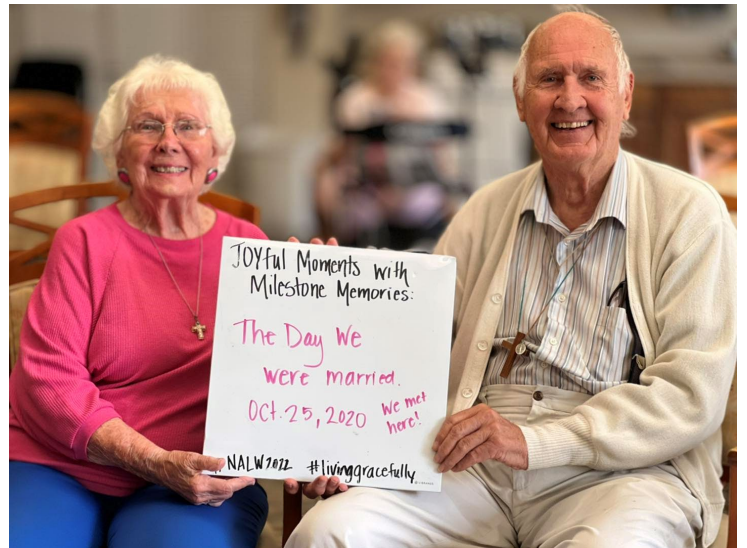 JOYful Moments with
Milestone Memories:
The Day We
were married.
Oct. 25, 2020
We met
here!
#NALW2022 #livinggracefully